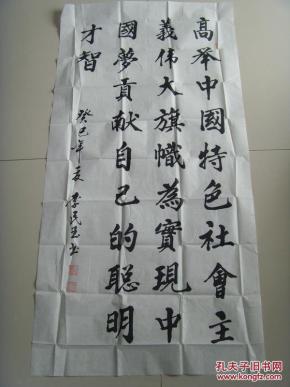 高举中國特色社會主
義伟大旗幟為實現中
國夢貢献自己的聪明
才智
癸巳年夏 李民
孔夫子旧书网